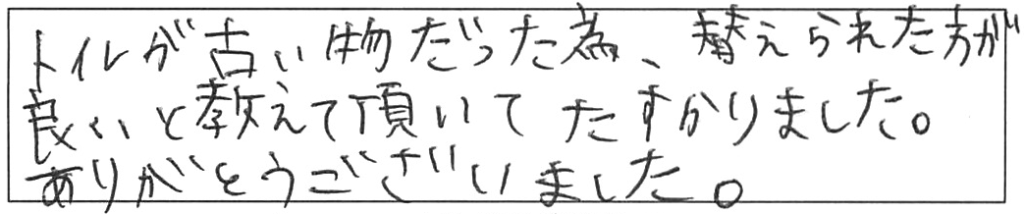 トイレが古い物だった為、替えられた方が
良いと教えて頂いてたすかりました。
ありがとうございました。